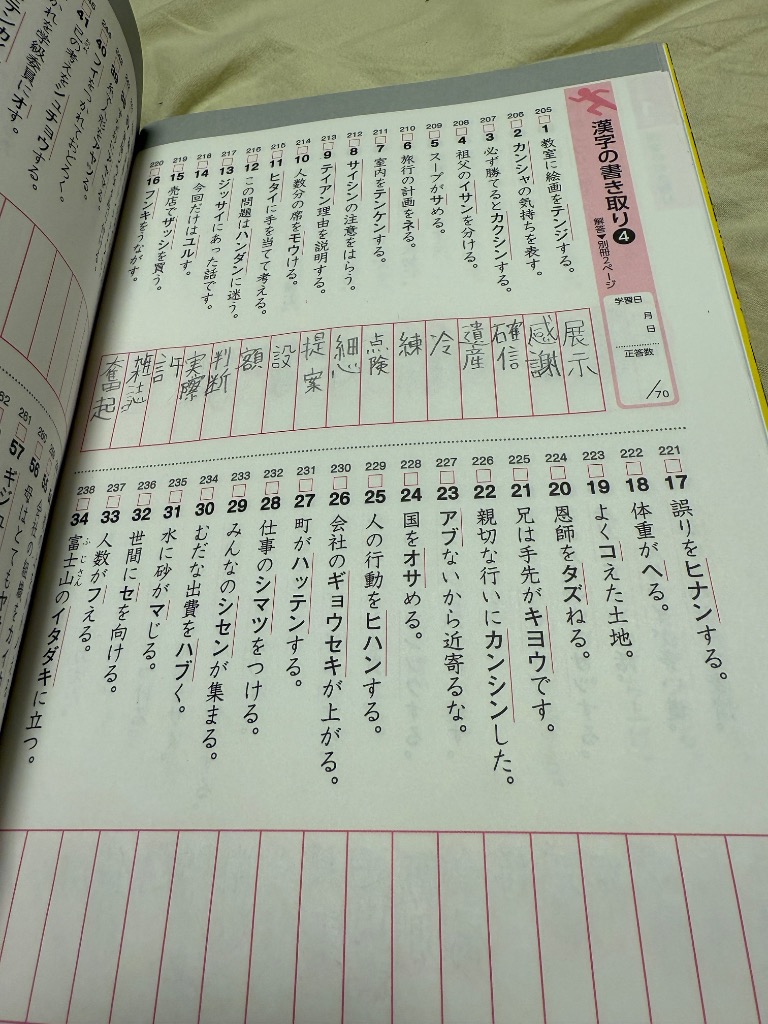 漢字の書き取り4
解答▼別冊2ページ
学習日
月
日
正答数
/70
205 1 教室に絵画をテンジする。
206 2 カンシャの気持ちを表す。
207 3 必ず勝てるとカクシンする。
208 4 祖父のイサンを分ける。
209 5 スープがサめる。
210 6 旅行の計画をネる。
211 7 室内をテンケンする。
212 8 サイシンの注意をはらう。
213 9 テイアン理由を説明する。
214 10 人数分の席をモウける。
215 11 ヒタイに手を当てて考える。
216 12 この問題はハンダンに迷う。
217 13 ジッサイにあった話です。
218 14 今回だけはユルす。
219 15 売店でザッシを買う。
220 16 フンキをうながす。
展示
感謝
確信
遺産
冷
練
点険
細心
提案
設
額
判断
実際
許
雑誌
奮起
221 17 誤りをヒナンする。
222 18 体重がへる。
223 19 よくコえた土地。
224 20 恩師をタズねる。
225 21 兄は手先がキヨウです。
226 22 親切な行いにカンシンした。
227 23 アブないから近寄るな。
228 24 国をオサめる。
229 25 人の行動をヒハンする。
230 26 会社のギョウセキが上がる。
231 27 町がハッテンする。
232 28 仕事のシマツをつける。
233 29 みんなのシセンが集まる。
234 30 むだな出費をハブく。
235 31 水に砂がマじる。
236 32 世間にセを向ける。
237 33 人数がフえる。
238 34 富士山のイタダキに立つ。
ふじさん